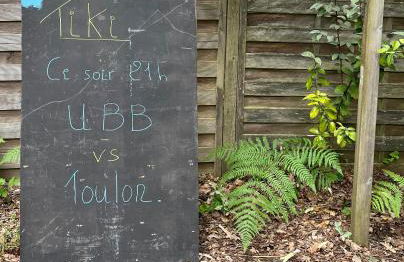 Tiki
Ce soir 21h
UBB
vs
Toulon.